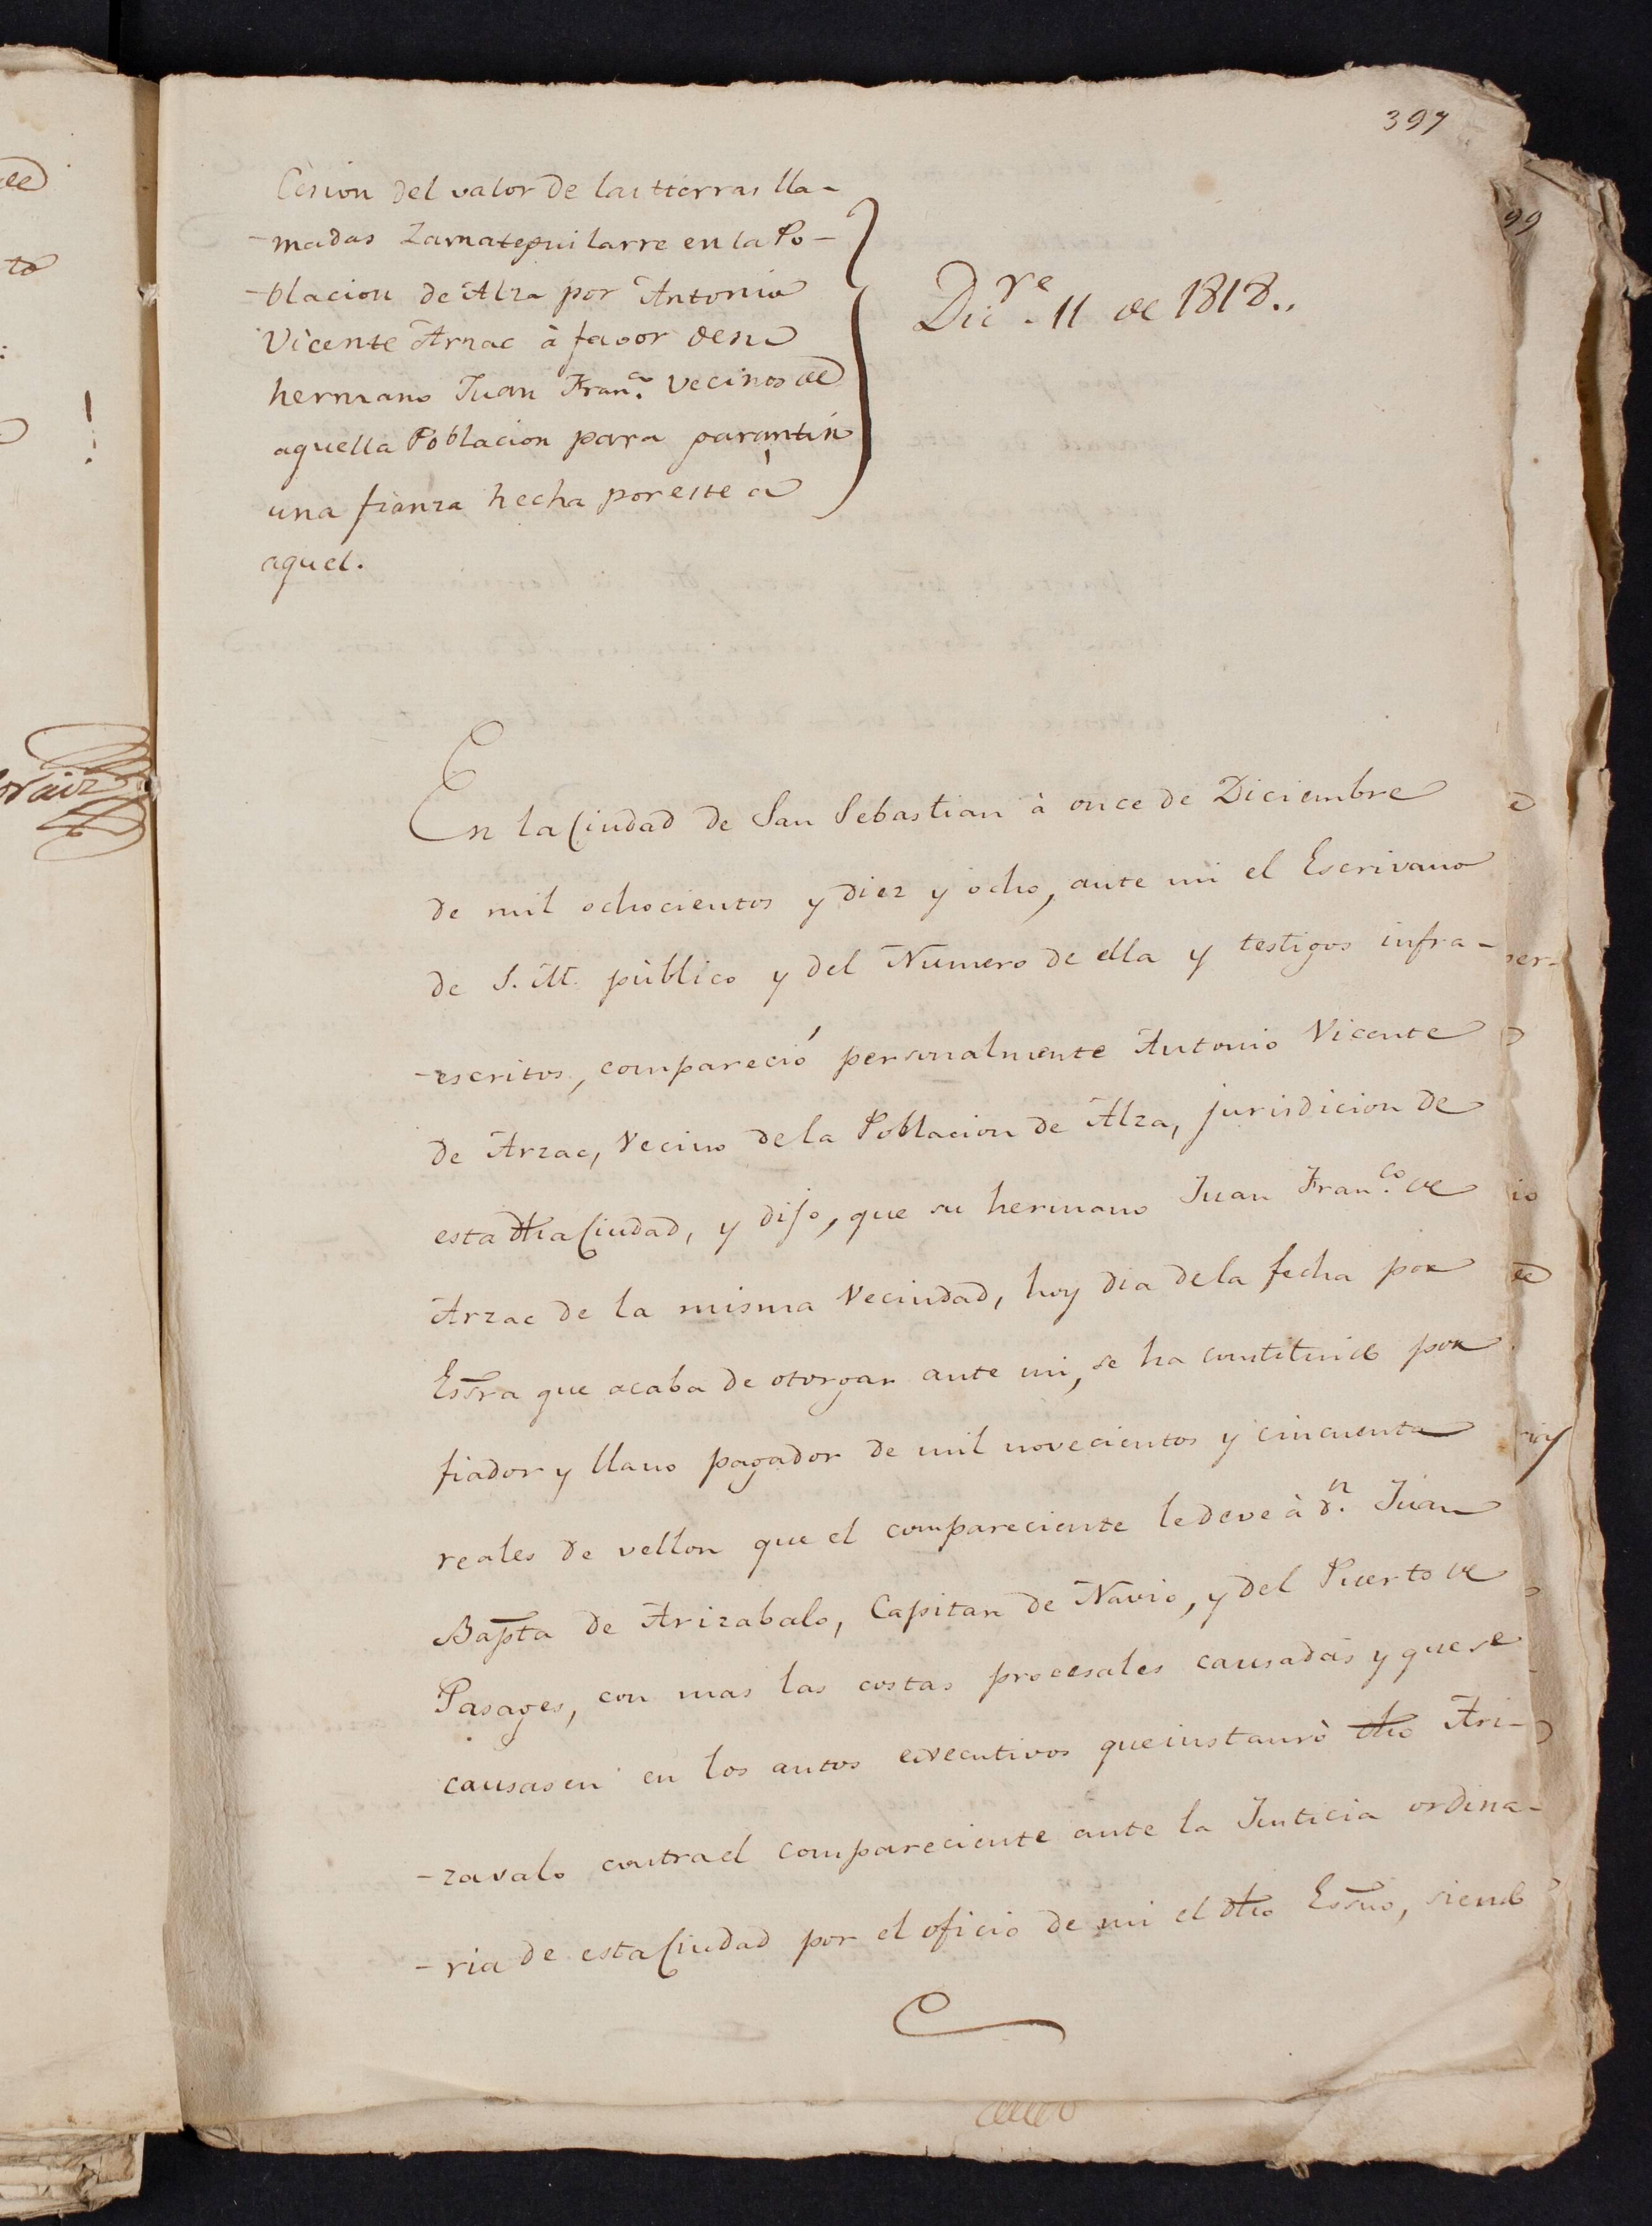 397
Cesion del valor de las tierras lla-
-madas Zamateguilarre en la Po-
-blacion de Alza por Antonio
Vicente Arzac à favor de su
hermano Juan Fran.co vecinos de
aquella Poblacion para garantir
una fianza hecha por este à
aquel.
Dic.re 11 de 1818..
En la Ciudad de San Sebastian à once de Diciembre
de mil ochocientos y diez y ocho, ante mi el Escrivano
de S. M. pùblico y del Numero de ella y testigos infra-
-escritos, compareció personalmente Antonio Vicente
de Arzac, Vecino de la Poblacion de Alza, jurisdicion de
esta dha Ciudad, y dijo, que su hermano Juan Fran.co de
Arzac de la misma Vecindad, hoy dia de la fecha por
Essra que acaba de otorgar ante mi, se ha constituido por
fiador y llano pagador de mil novecientos y cincuenta
reales de vellon que el compareciente le deve à d.n Juan
Bapta de Arizabalo, Capitan de Navio, y del Puerto de
Pasages, con mas las costas procesales causadas y que se
causasen en los autos executivos que instaurò dho Ari-
-zavalo contra el compareciente ante la Justicia ordina-
-ria de esta Ciudad por el oficio de mi el dho Essno, siendo
99